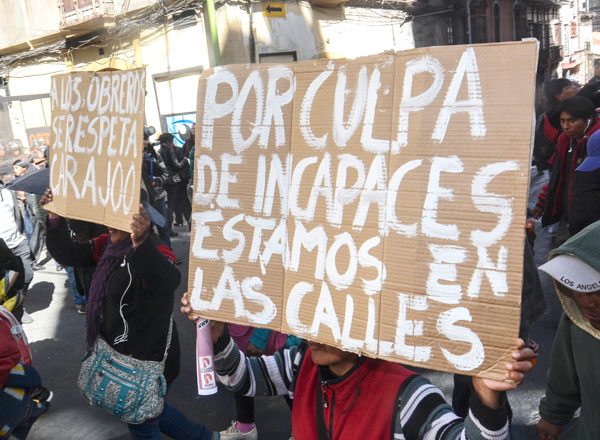 A LOS OBRERO
SE RESPETA
CARAJOO
POR CULPA
DE INCAPACES
ESTAMOS EN
LAS CALLES
LOS ANGEL